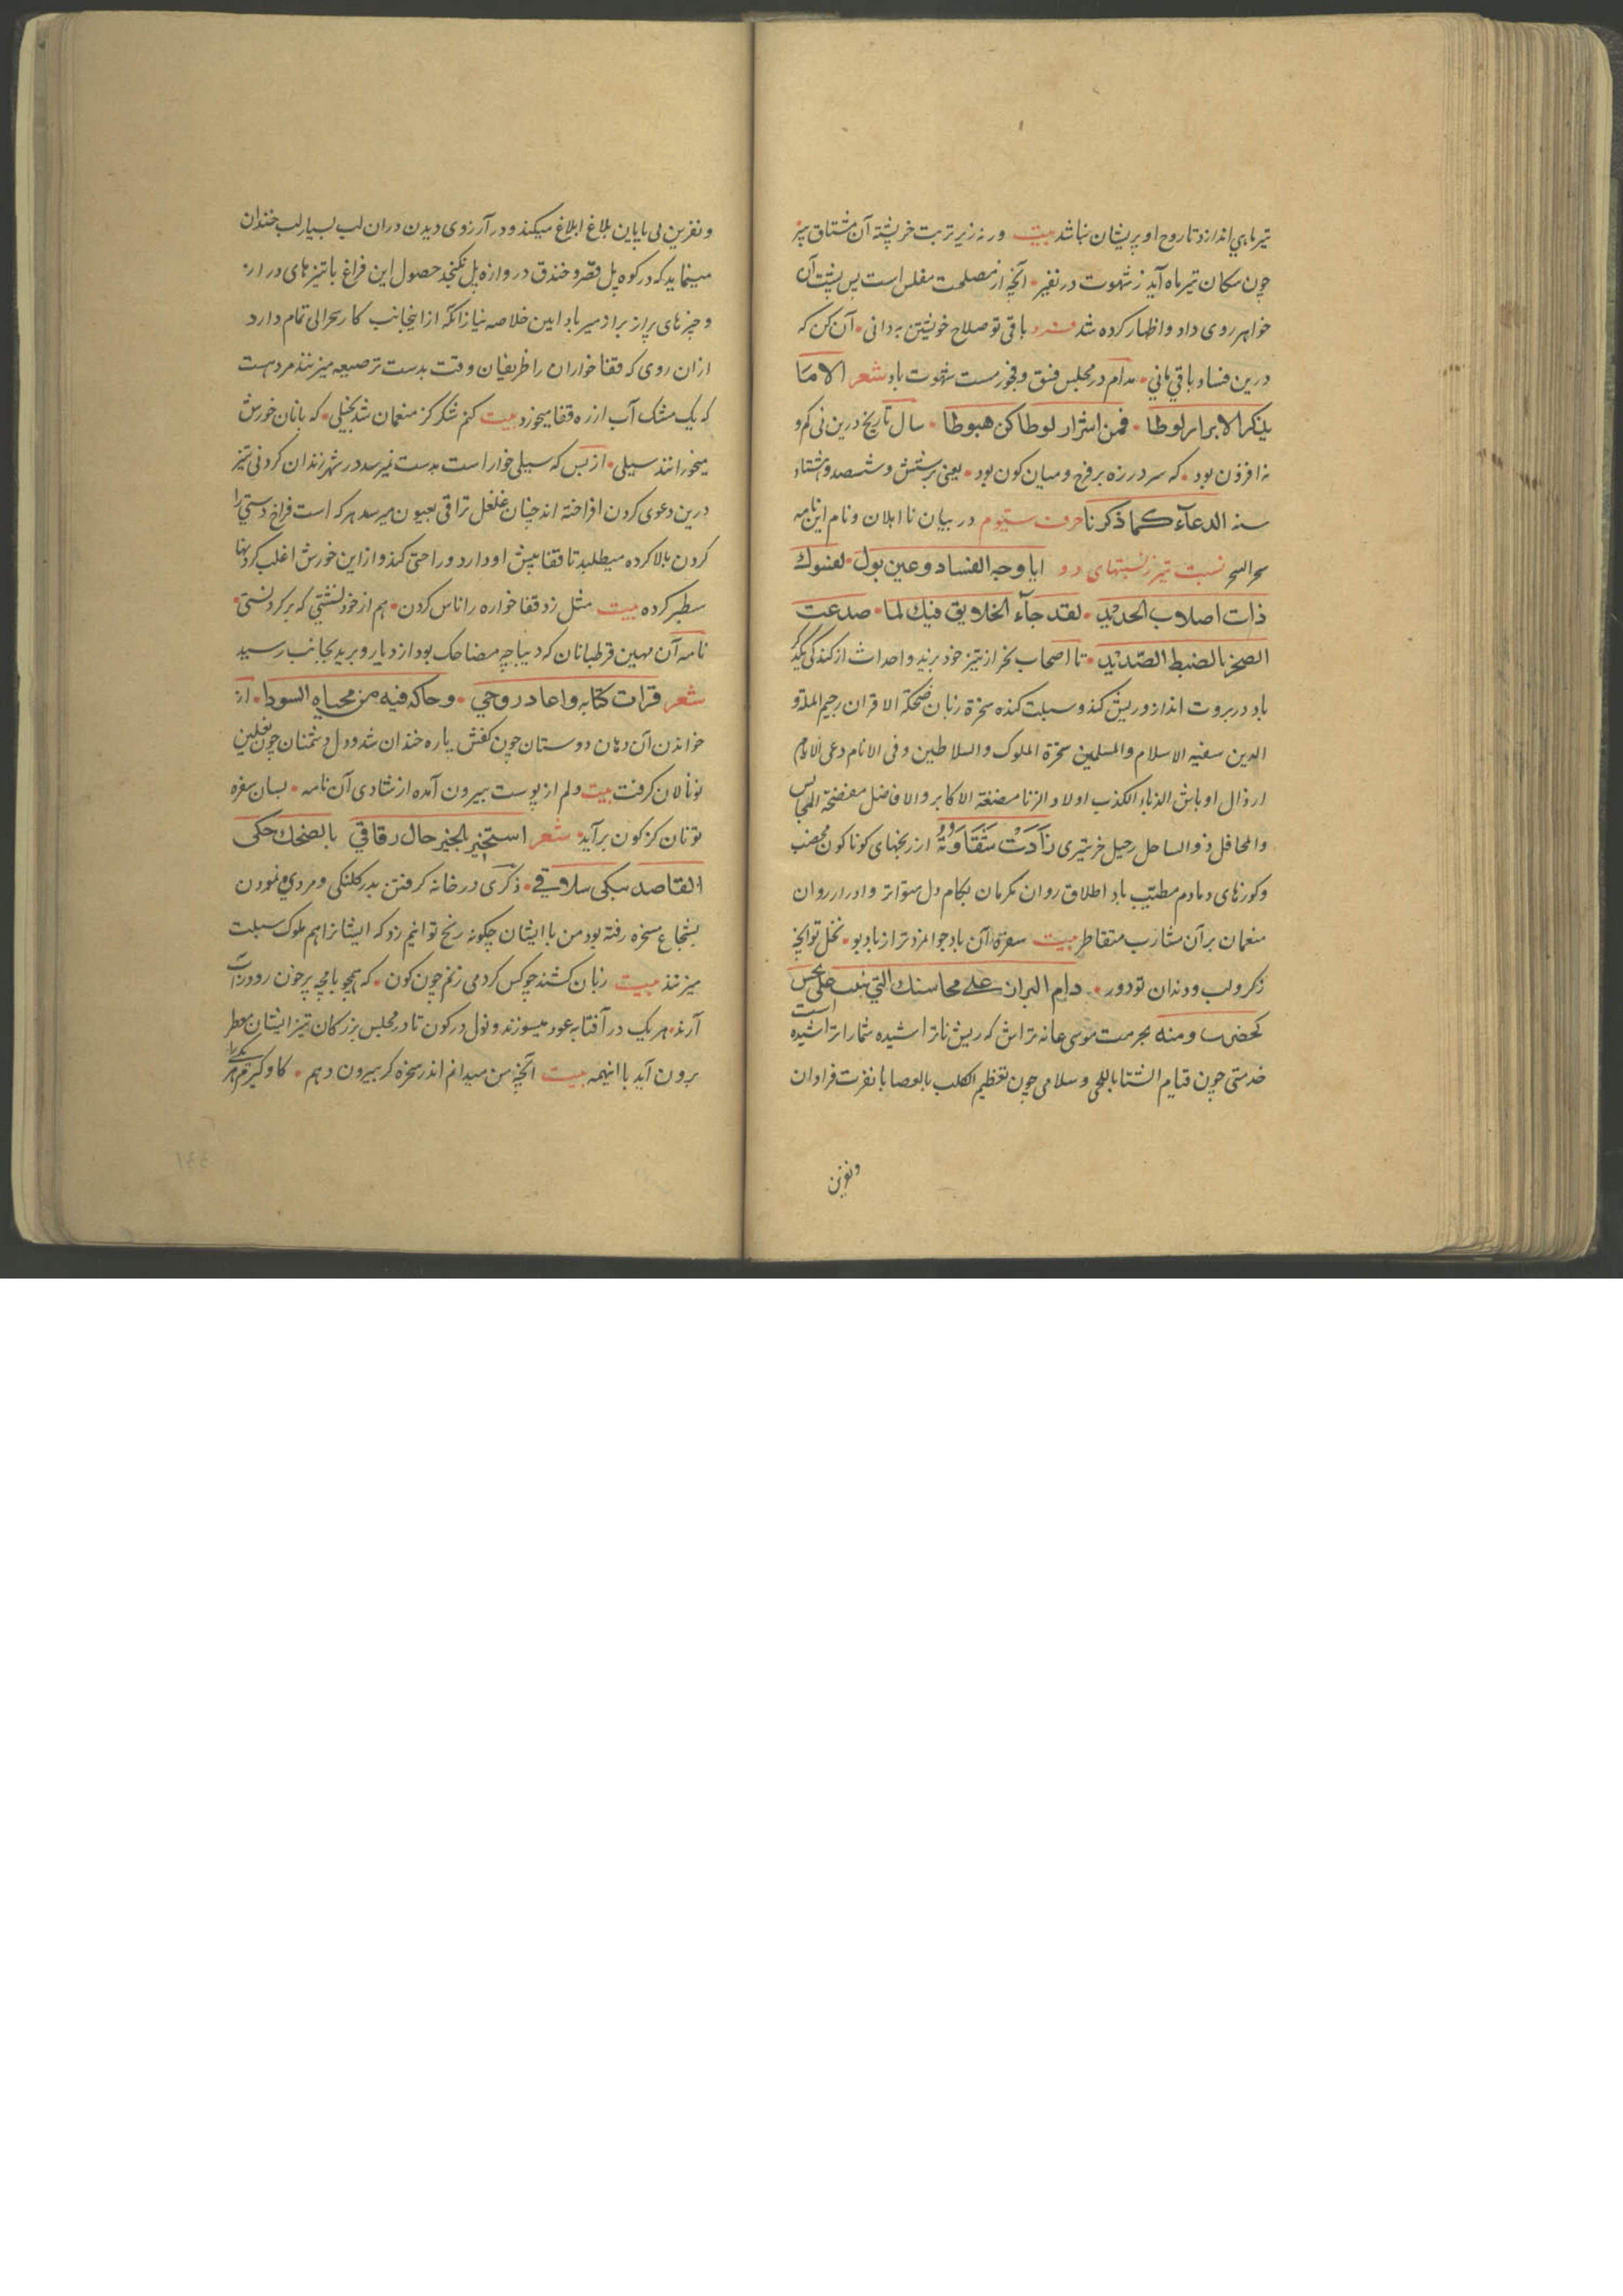 تیرهای اندازد تا روح او پریشان نباشد بیت ورنه زیر تربت خرپشته آن مشتاق تیز
چون سکان تیر ماه آید ز شهوت در نفیر آنچه از مصلحت مفلس است پس پشت آن
خواهر روی داد و اظهار کرده شد فرد باقی تو صلاح خویشتن به دانی آن کن که
درین فساد باقی مانی مدام در مجلس فسق و فجور مست شهوت باد شعر الا ما
ینکر الابرار لوطا فمن اشرار لوطا کن هبوطا سال تاریخ درین نی کم و
نه افزون بود که سر در زه بر فرج و میان کون بود یعنی برشش و ششصد و هشتاد
سنه الدعاء کما ذکرنا حرف ستیوم در بیان نا اهلان و نام این نامه
سحر السحر نسبت تیز نسبتهای دو ایا وجه الفساد و عین بول لعنوک
ذات اصلاب الحدید لقد جآء الخلایق فیک لما صدعت
الصخر بالضبط الصدید تا اصحاب بخر از تیز خود برند و احداث از کندگی
باد در بروت انداز و ریش کنده و سبلت کنده سخرة زنان ضحکة الاقران رجیم الملة و
الدین سفیه الاسلام والمسلمین سخرة الملوک والسلاطین و فی الانام دعی الانام
ارذال اوباش الذباد الکذب اولاد الزنا مضغة الاکابر والافاضل مفضحة المجالس
والمحافل ذو الساحل رحیل خرتیزی زادت شقاوته از رنجهای کوناکون مخضب
وکوزهای دمادم مطیب باد اطلاق روان مکرمان بکام دل متواتر و ادرار روان
منعمان بر آن مشارب متقاطر بیت سفره آن باد جوامزد تر از باد بو نخل تو آنچه
ز کرو لب و دندان تو دور دام البراز علی محاسنک التی نبت علی نجس
کحض است ومنه بحرمت موسی عانه تراش که ریش نا تراشیده شما را تراشیده
خدمتی چون قیام الشتا باللحی و سلامی چون تعظیم الکلب بالعصا با نفرت فراوان
ونفرین
و نفرین بی پایان بلاغ ابلاغ میکند و در آرزوی دیدن دران لب بسیار لب خندان
مینماید که در کوه پل قصر و خندق دروازه پل نکنجد حصول این فراغ با تیزهای دراز
و چیزهای پر از براز میر باد امین خلاصه نیاز آنکه از اینجانب کار سحرالی تمام دارد
ازان روی که قفا خواران را ظریفان وقت بدست ترصیعه میزنند مردیست
که یک مشک آب از ره قفا میخورد بیت کنم شکر کز منعمان شد بخیلی که با نان خورش
میخورانند سیلی از بس که سیلی خوار است بدست نمیرسد در شهر زندان کردنی تیز
درین دعوی کردن افراخته اند چنان غلغل تراقی بعیون میرسد هر که است فراخ دستی را
کردن بالا کرده میطلبد تا قفا پیش او دارد و راحتی کند و از این خورش اغلب کردنها
سطبر کرده بیت مثل زد قفا خواره را ناس کردن هم از خود نشتی که بر کردنستی
نامه آن مهین قرطبانان که دیباچه مضاحک بود از دیار و برید بجانب رسید
شعر قرات کتابه واعاد روحی وحاکه فیه من محیاه السودا از
خواندن آن دهان دوستان چون کفش پاره خندان شد و دل دشمنان چون نعلین
نو نالان کرفت بیت دلم از پوست بیرون آمده از شادی آن نامه بسان سفره
نونان کز کون برآید شعر استخبر الخیز حال رقاقی بالضحک حکی
القاصد یبکی سلاقی ذکری در خانه کرفتن بدر کلنکی و مردی نمودن
بشجاع مسخره رفته بود من با ایشان چکونه رنج توانیم زد که ایشانرا هم ملوک سبلت
میزنند بیت زنان کشند چو کس کردمی زخم چون کون که همچو بامچه پر خون روده راست
آرند هر یک در آفتابه عود میسوزند و نول در کون تا در مجلس بزرکان تیز ایشان معطر
برون آید با اینهمه بیت آنچه من میدانم اندر سخره کر بیرون دهم کاو کیرم هر یکی را